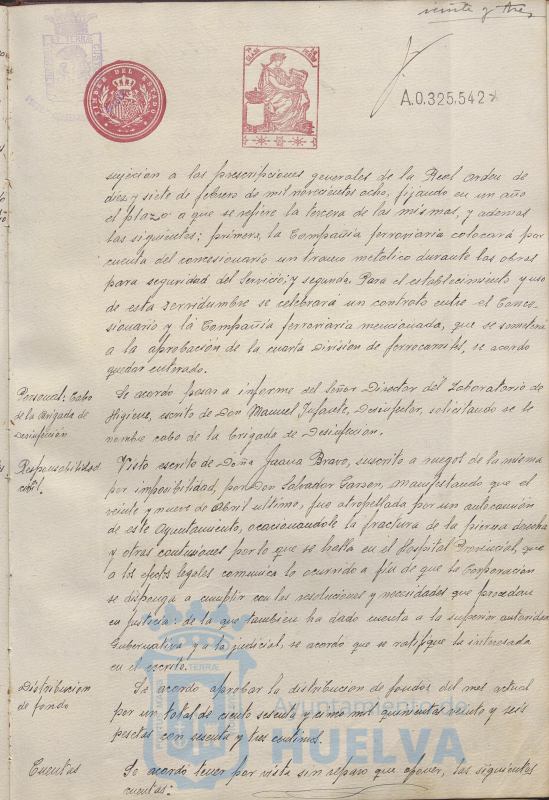 veinte y tres
TIMBRE DEL ESTADO
A.0.325.542
sujecion a las prescripciones generales de la Real orden de
diez y siete de febrero de mil novecientos ocho, fijando en un año
el plazo a que se refiere la tercera de las mismas, y ademas
las siguientes: primera, la Compañia ferroviaria colocará por
cuenta del concesionario un tramo metalico durante las obras
para seguridad del Servicio; y segunda. Para el establecimiento y uso
de esta servidumbre se celebrará un contrato entre el Conce-
sionario y la Compañia ferroviaria mencionada, que se someterá
a la aprobación de la cuarta Division de ferrocarriles, se acordo
quedar enterado.
Personal: Cabo
de la Brigada de
Desinfección
Se acordo pasar a informe del Señor Director del Laboratorio de
Higiene, escrito de Don Manuel Infante, Desinfector, solicitando se le
nombre cabo de la brigada de Desinfeccion.
Responsabilidad
civil.
Visto escrito de Doña Juana Bravo, suscrito a ruegos de la misma
por imposibilidad, por Don Salvador Garzon, manifestando que el
veinte y nueve de Abril ultimo, fue atropellada por un autocamión
de este Ayuntamiento, ocacionandole la fractura de la pierna derecha
y otras contusiones por lo que se halla en el Hospital Provincial, que
a los efectos legales comunica lo ocurrido a fin de que la Corporación
se disponga a cumplir con las resoluciones y necesidades que procedan
en justicia: de la que tambien ha dado cuenta a la superior autoridad
Gubernativa y a la judicial, se acordo que se ratifique la interesada
en el escrito.
Distribucion
de fondo
Se acordo aprobar la distribucion de fondos del mes actual
por un total de ciento sesenta y cinco mil quinientas veinte y seis
pesetas con sesenta y tres centimos.
Cuentas
Se acordo tener por vista sin reparo que oponer, las siguientes
cuentas:
Ayuntamiento de
HUELVA